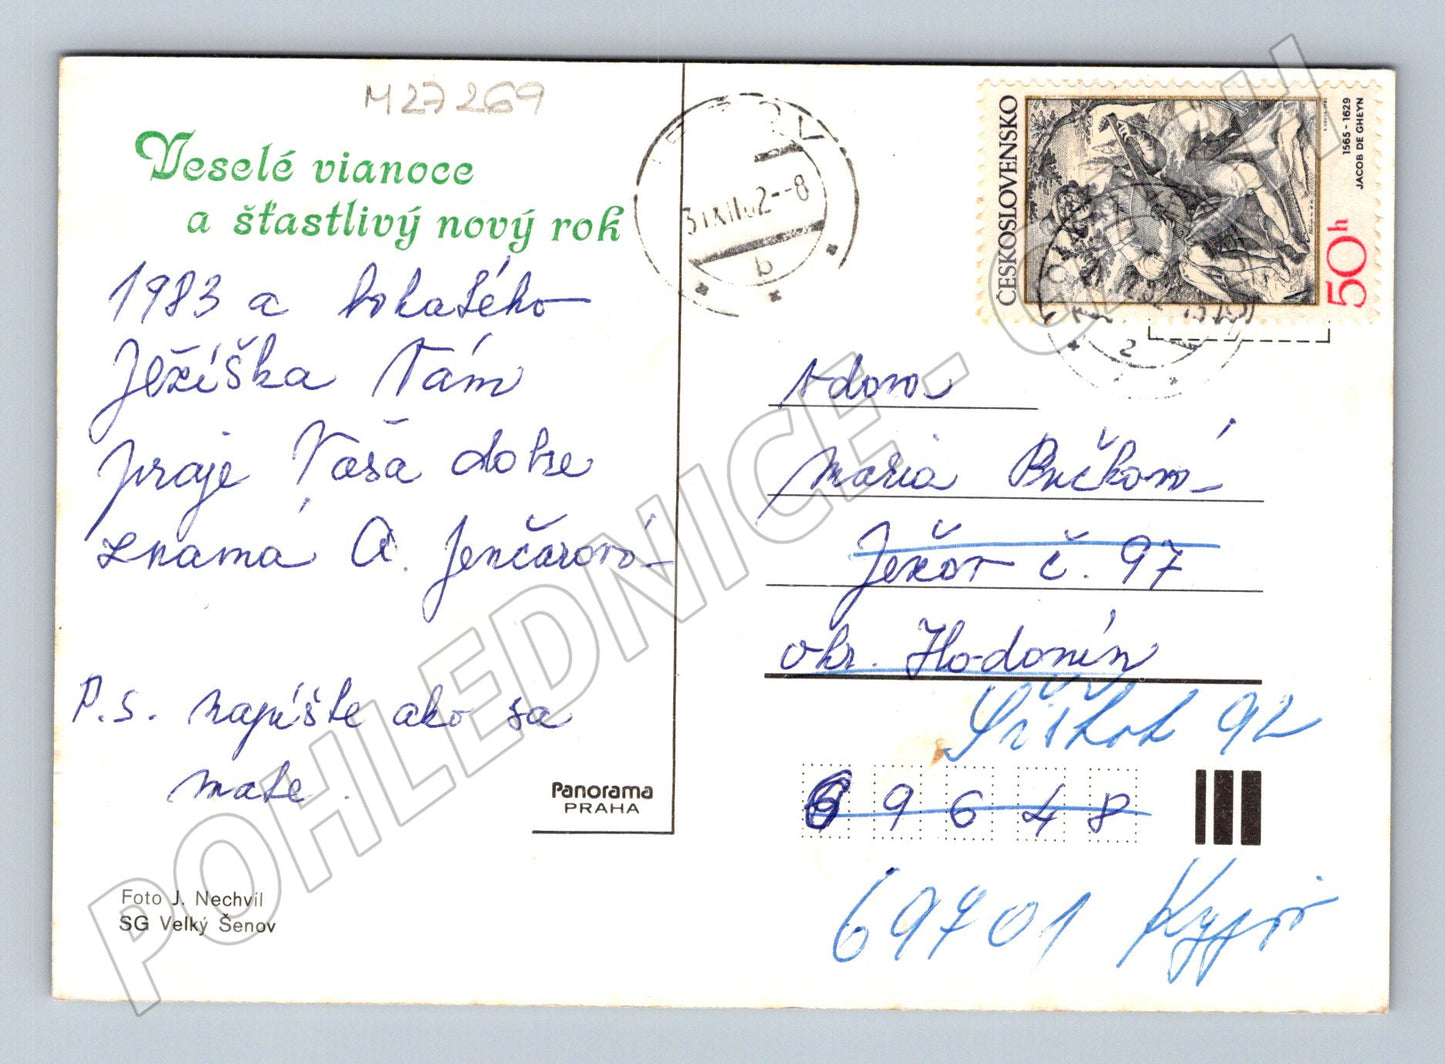 M27269
Veselé vianoce
a šťastlivý nový rok
1983 a bohatého
Ježíška Vám
praje Vaša dobre
znamá A. Jenčarová
P.S. napíšte ako sa
mate.
Panorama
PRAHA
Foto J. Nechvíl
SG Velký Šenov
31.XII.82--8
b
ČESKOSLOVENSKO
1565-1629
JACOB DE GHEYN
50h
2
vdova
Maria Bučková
Ježov č. 97
okr. Hodonín
92
69648
69701 Kyjov
POHLEDNICE